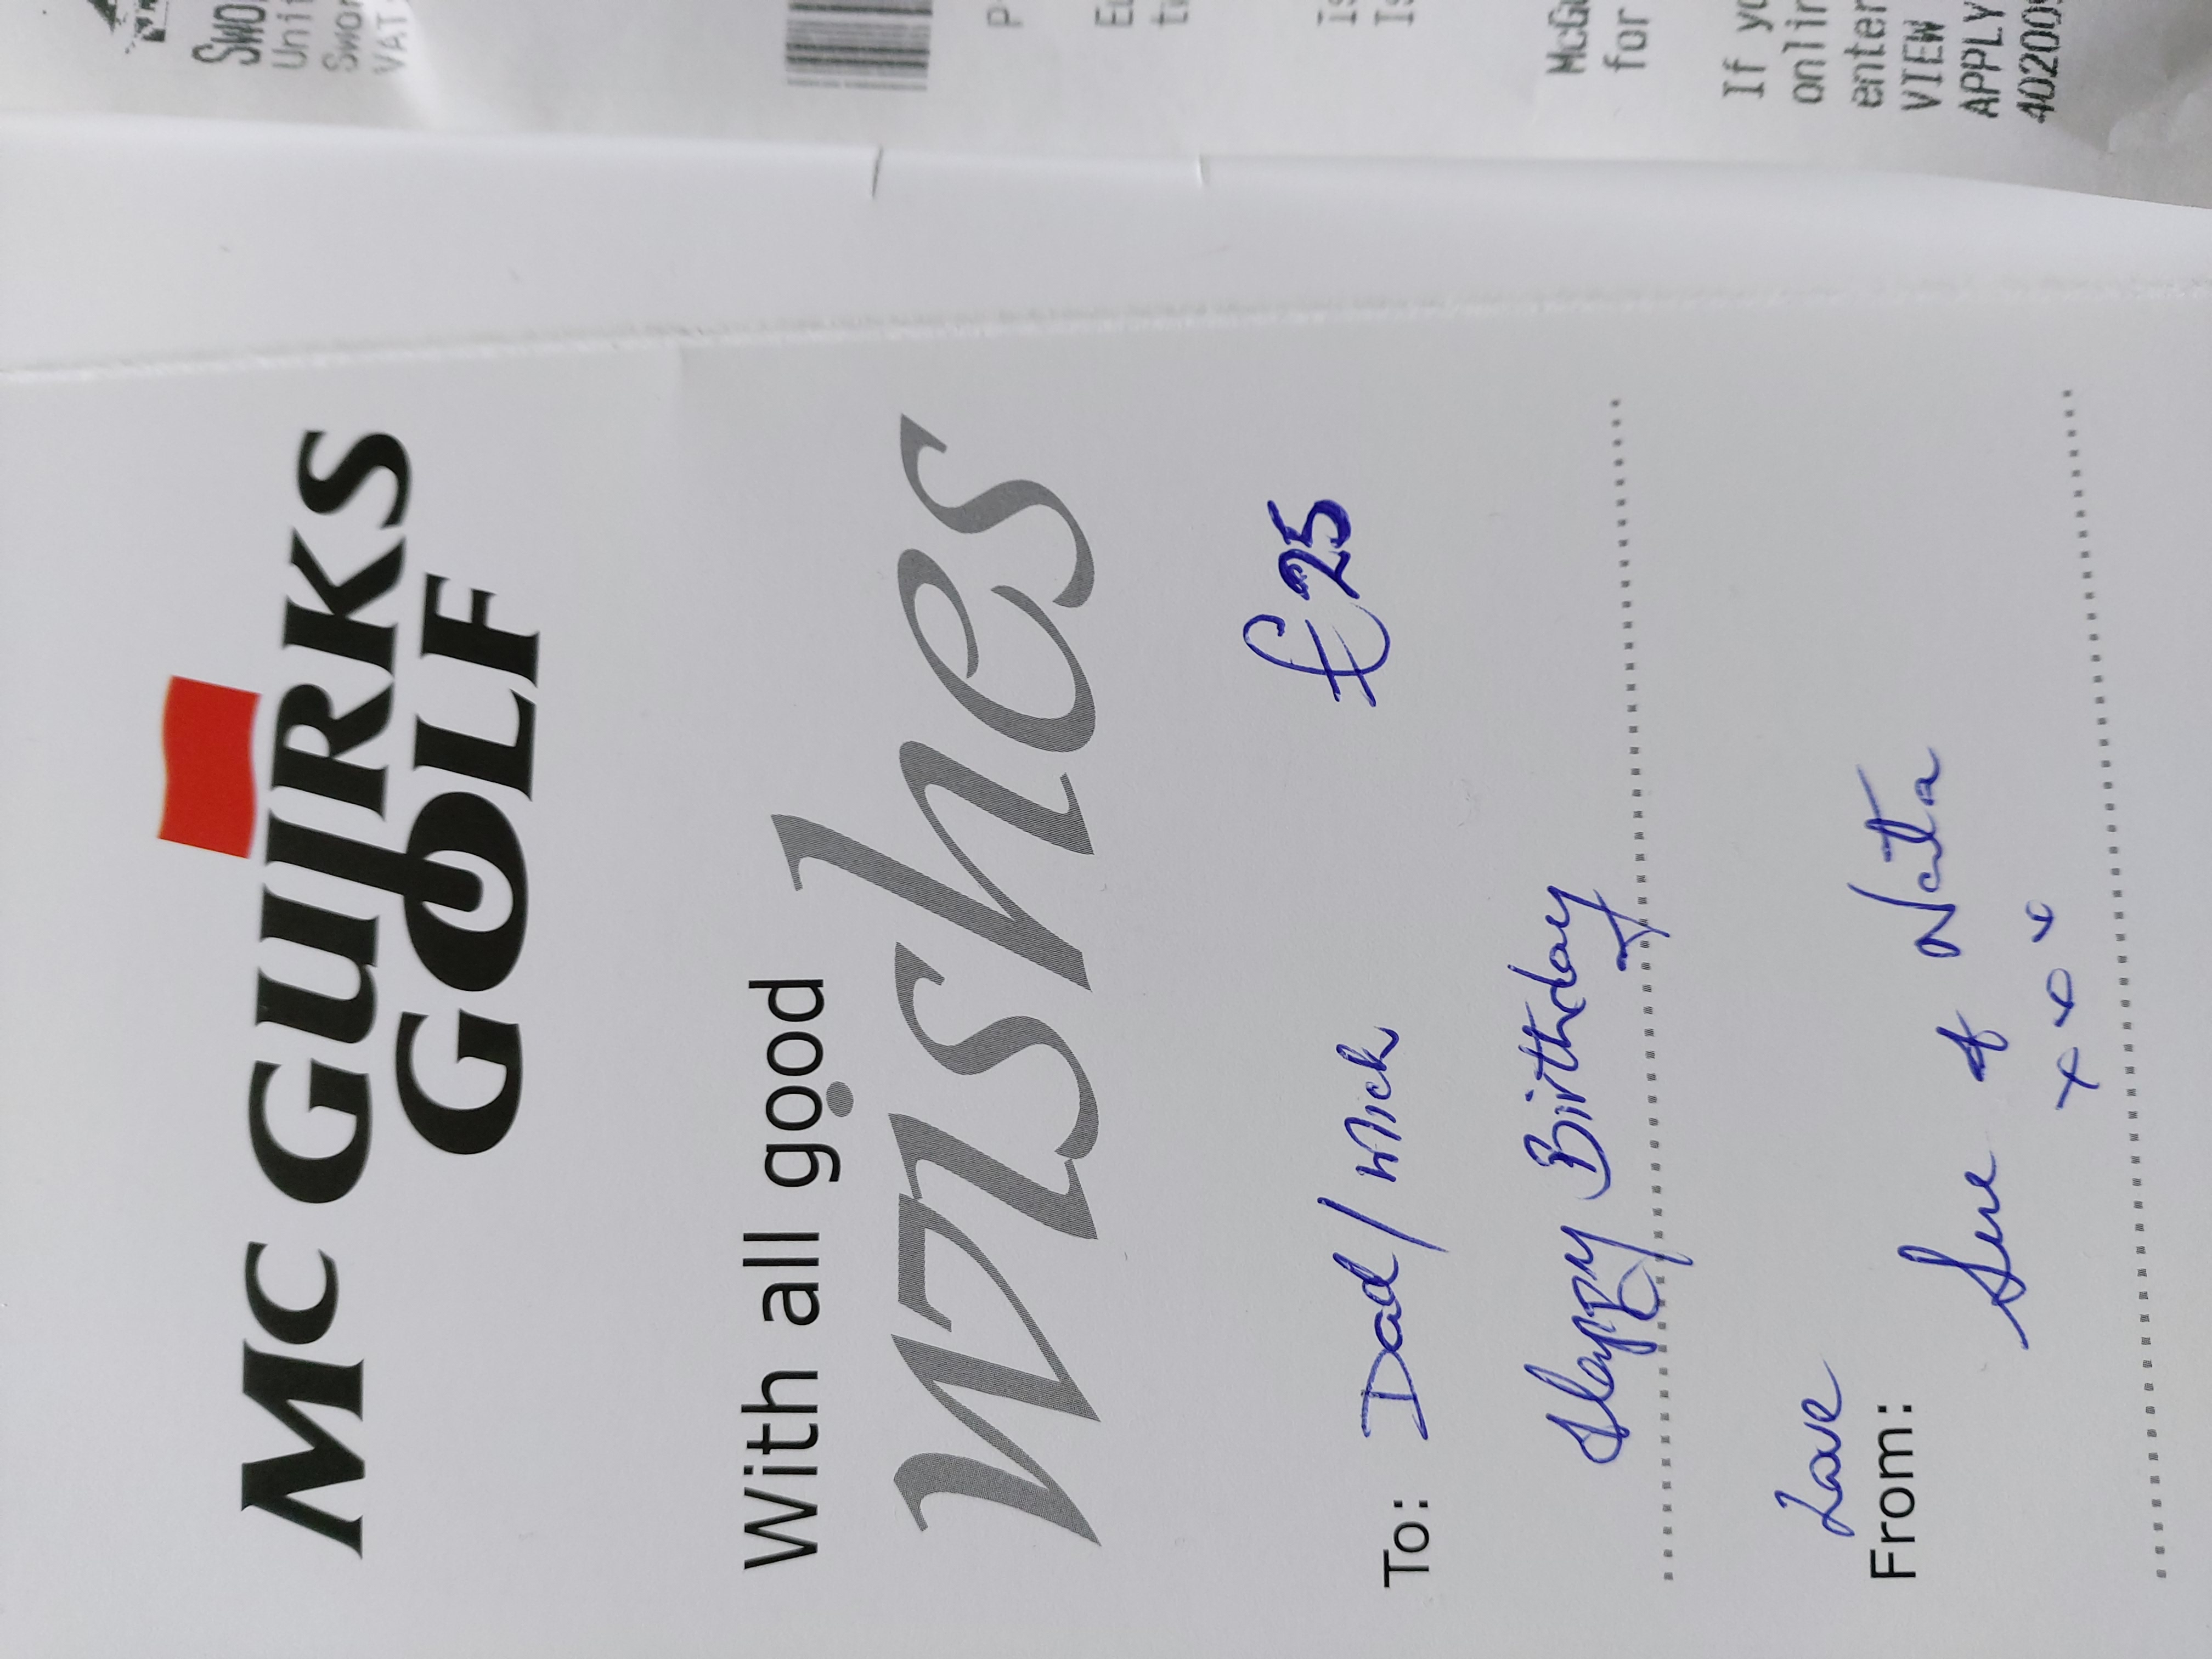 McGUIRKS
GOLF
With all good
wishes
£25
To: Dad/Mick
Happy Birthday
Love
From:
Sue & Nata
xxx
Swo
Unit
Swor
VAT
P
Eu
tw
Is
Is
McGu
for
If yo
onlin
enter
VIEW
APPLY
402009